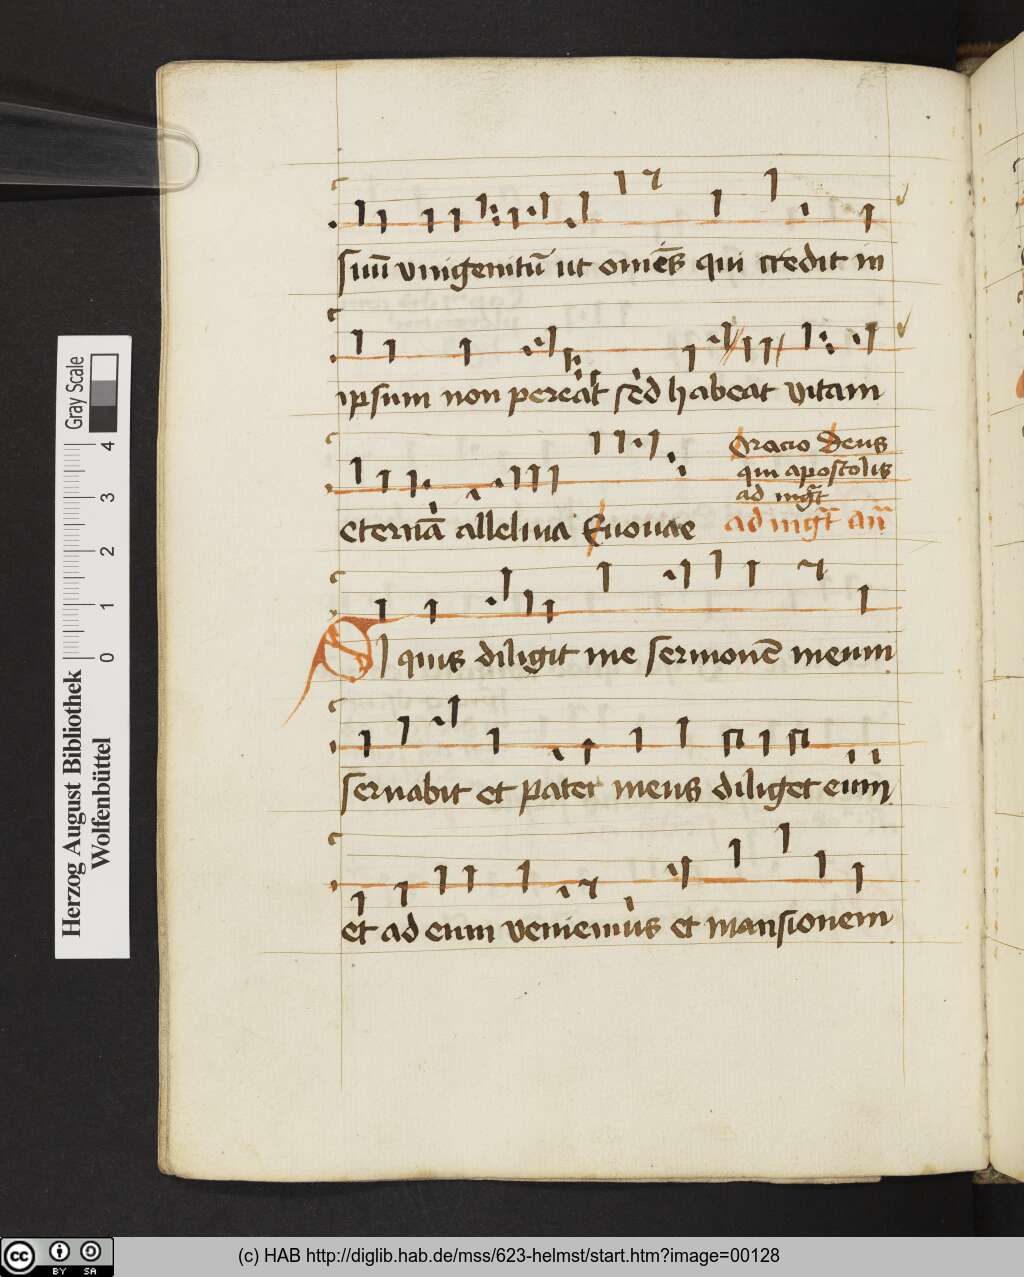 suū vnigenitū ut om̄es qui credit in
ipsum non pereat sed habeat vitam
Oracio Deus
qui apostolis
ad mg̃t
eternā alleluia Euouae
ad mg̃t añ
SI quis diligit me sermonē meum
seruabit et pater meus diliget eum
et ad eum veniemus et mansionem
Herzog August Bibliothek
Wolfenbüttel
Gray Scale
0 1 2 3 4
cc BY SA
(c) HAB http://diglib.hab.de/mss/623-helmst/start.htm?image=00128